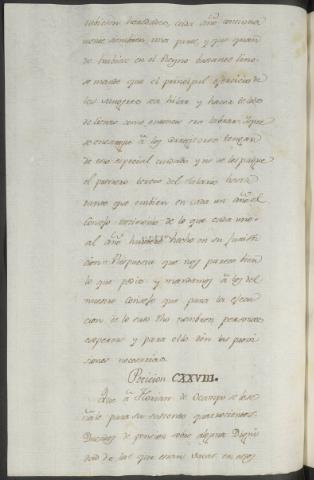 cada año
mente siembren una parte, y que quan
do hubiere en el Reyno bastante lino
se mande que el principal exercicio de
las mugeres sea hilar y hacer telas
de lienzo como entonces se labran, i que
se encargue à los corregidores tengan
de esto especial cuidado y no se les pague
el primero tercio del Salario hasta
tanto que embien en cada un año al
Consejo testimonio de lo que cada uno
al año hubiere hecho en su Jurisdi
cion = Respuesta que nos parece bien
lo que pedis y mandamos à los del
nuestro Consejo que para la ejecu
cion de lo suso dho nombren personas
expertas y para ello den las provi
siones necesarias
Peticion CXXVIII.
Que à Florian de Ocampo se le se
ñale para su sustento quatrocientos
Ducados de pension sobre alguna Digni
dad de las que estan vacas, en esos